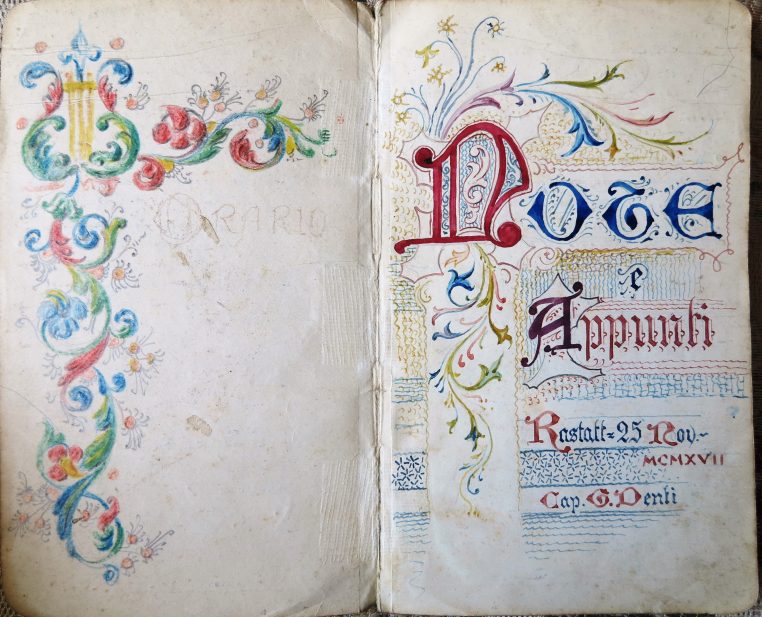 ORARIO
NOTE
e
Appunti
Rastatt=25 Nov.-
MCMXVII
Cap. G. Denti